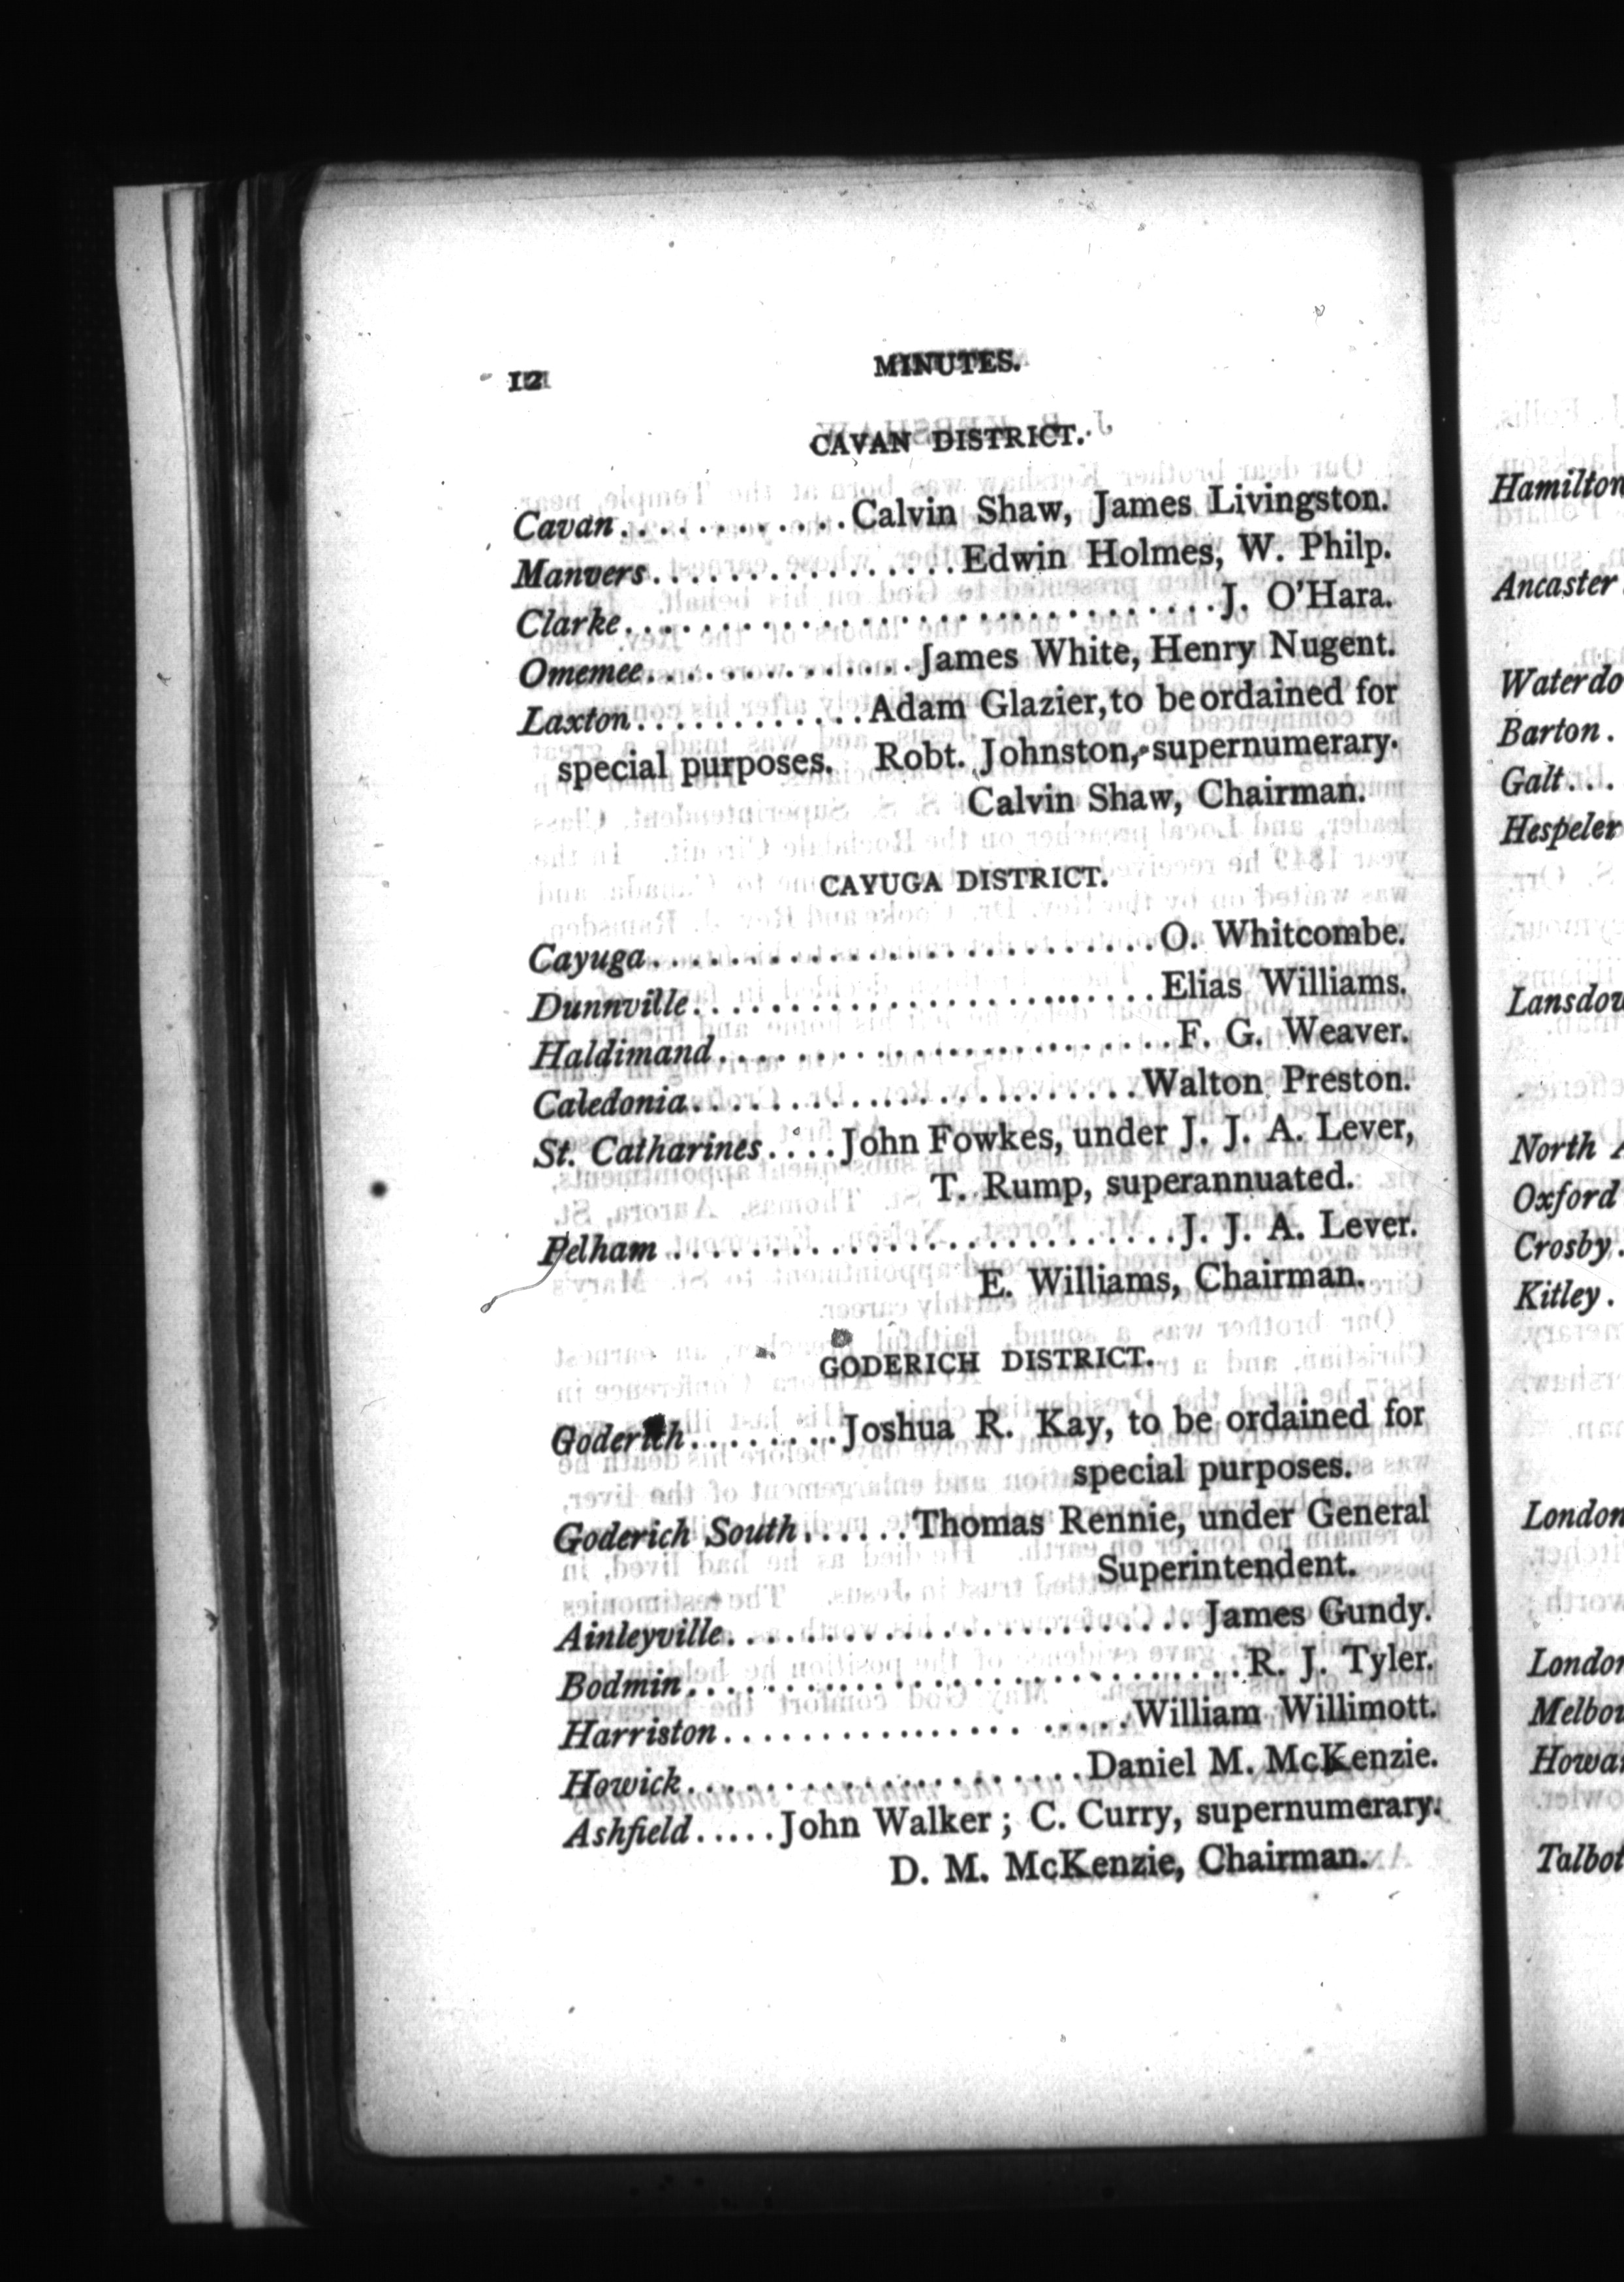 12
MINUTES.
CAVAN DISTRICT.
Cavan............Calvin Shaw, James Livingston.
Manvers................Edwin Holmes, W. Philp.
Clarke..............................J. O'Hara.
Omemee..............James White, Henry Nugent.
Laxton............Adam Glazier, to be ordained for
special purposes. Robt. Johnston, supernumerary.
Calvin Shaw, Chairman.
CAYUGA DISTRICT.
Cayuga..........................O. Whitcombe.
Dunnville........................Elias Williams.
Haldimand.......................F. G. Weaver.
Caledonia.......................Walton Preston.
St. Catharines....John Fowkes, under J. J. A. Lever,
T. Rump, superannuated.
Pelham..........................J. J. A. Lever.
E. Williams, Chairman.
GODERICH DISTRICT.
Goderich........Joshua R. Kay, to be ordained for
special purposes.
Goderich South......Thomas Rennie, under General
Superintendent.
Ainleyville........................James Gundy.
Bodmin............................R. J. Tyler.
Harriston............... .....William Willimott.
Howick.....................Daniel M. McKenzie.
Ashfield.....John Walker; C. Curry, supernumerary.
D. M. McKenzie, Chairman.
Hamilton
Ancaster
Barton.
Galt...
Hespeler
North
Oxford
Crosby.
Kitley.
London